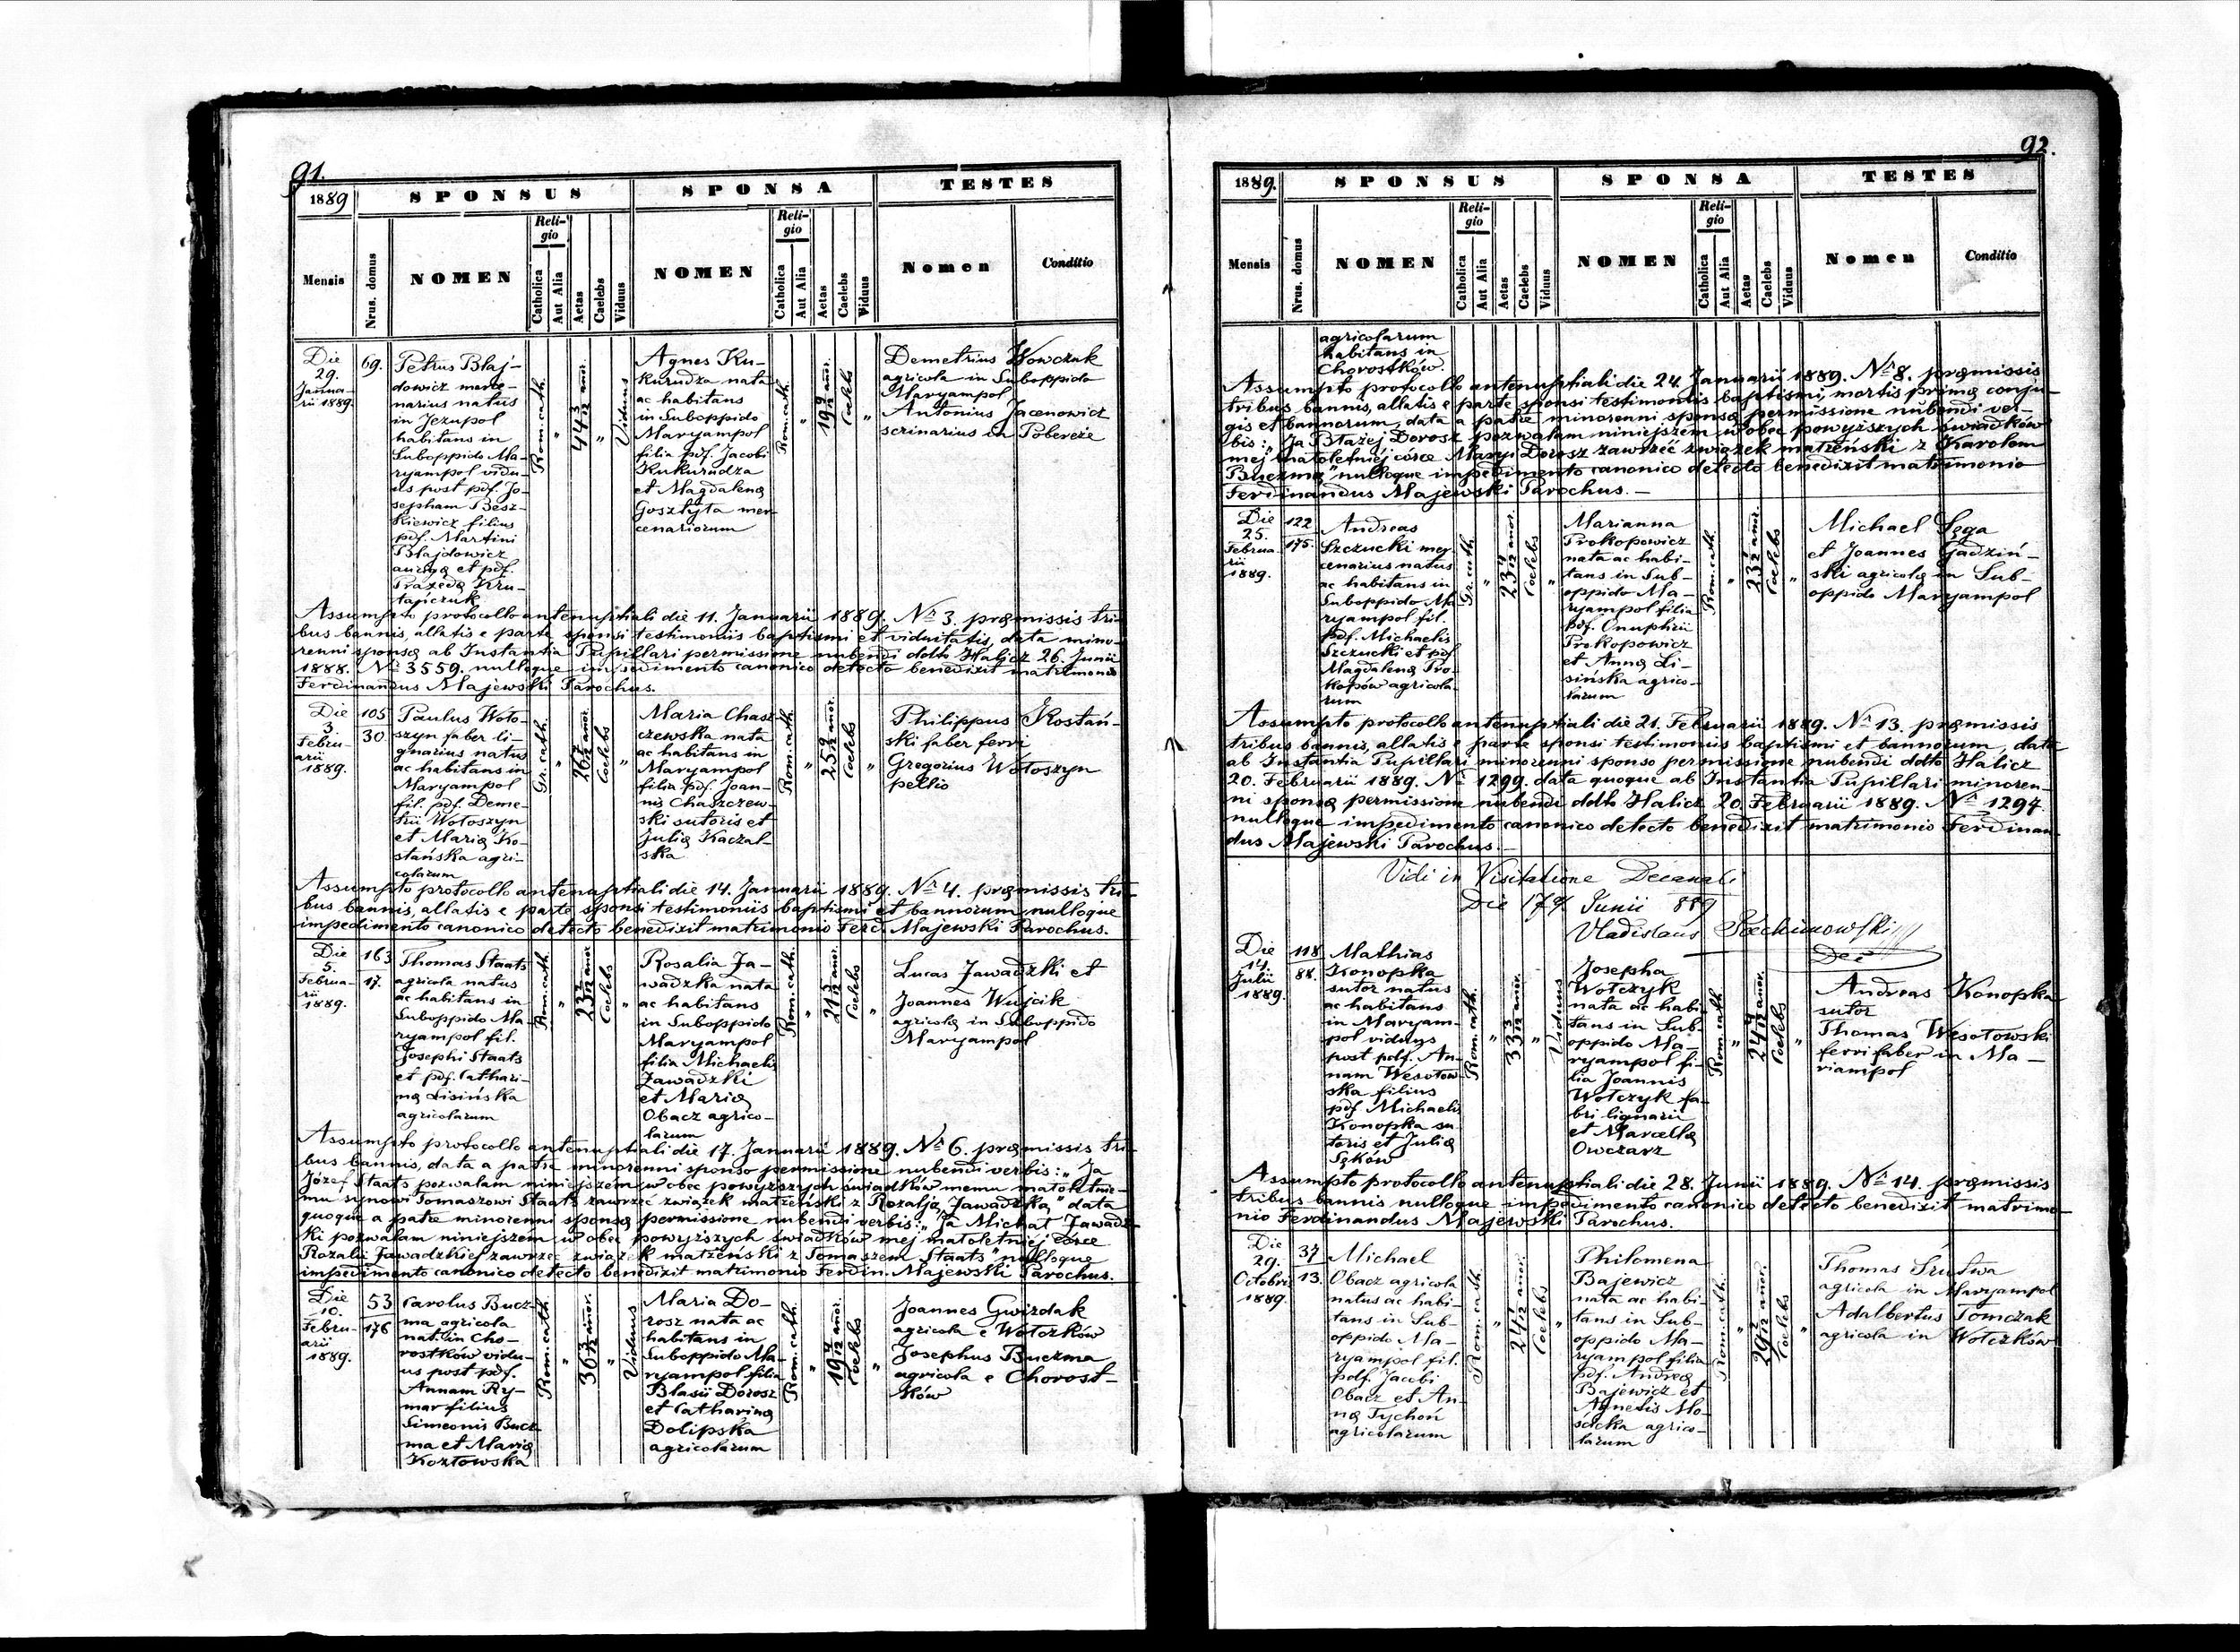 91.
1889
SPONSUS
SPONSA
TESTES
Mensis
Nrus. domus
NOMEN
Religio
Catholica
Aut Alia
Aetas
Caelebs
Viduus
NOMEN
Religio
Catholica
Aut Alia
Aetas
Caelebs
Viduus
Nomen
Conditio
Die
29.
Janua-
rii 1889.
69.
Petrus Błaj-
dowicz merce-
narius natus
in Jezupol
habitans in
Suboppido Ma-
ryampol vidu-
us post pdf. Jo-
sepham Besz-
kiewicz filius
pdf. Martini
Błajdowicz
et pdf.
Praxedę Kru-
tajczuk
Rom. cath.
"
44 3/12 anor.
"
Viduus
Agnes Ku-
kurudza nata
ac habitans
in Suboppido
Maryampol
filia pdf. Jacobi
Kukurudza
et Magdalenę
Gosztyła mer-
cenariorum
Rom. cath.
"
19 9/12 anor.
Coelebs
"
Demetrius Wowczuk
agricola in Suboppido
Maryampol
Antonius Jacenowicz
scrinarius in Pobereże
Assumpto protocollo antenuptiali die 11. Januarii 1889. Nr. 3. pręmissis tri-
bus bannis, allatis e parte sponsi testimoniis baptismi et viduitatis, data mino-
renni sponsę ab Instantia Pupillari permissione nubendi ddto Halicz 26. Junii
1888. Nr. 3559. nulloque impedimento canonico detecto benedixit matrimonio
Ferdinandus Majewski Parochus.
Die
3
Febru-
arii
1889.
105
30
Paulus Woło-
szyn faber li-
gnarius natus
ac habitans in
Maryampol
fil. pdf. Deme-
trii Wołoszyn
et Marię Ko-
stańska agri-
colarum
Gr. cath.
"
Coelebs
"
Maria Chasz-
czewska nata
ac habitans in
Maryampol
filia pdf. Joan-
nis Chaszczew-
ski sutoris et
Julię Kaczal-
ska
Rom. cath.
"
25 9/12 anor.
Coelebs
"
Philippus Kostań-
ski faber ferri
Gregorius Wołoszyn
pellio
Assumpto protocollo antenuptiali die 14. Januarii 1889. Nr. 4. pręmissis tri-
bus bannis, allatis e parte sponsi testimoniis baptismi et bannorum nulloque
impedimento canonico detecto benedixit matrimonio Ferd. Majewski Parochus.
Die
5.
Februa-
rii
1889.
163
17.
Thomas Staats
agricola natus
ac habitans in
Suboppido Ma-
ryampol fil.
Josephi Staats
et pdf. Cathari-
nę Lisińska
agricolarum
Rom. cath.
"
Coelebs
"
Rosalia Ja-
wadzka nata
ac habitans
in Suboppido
Maryampol
filia Michaelis
Zawadzki
et Marię
Obacz agrico-
larum
Rom. cath.
"
21 5/12 anor.
Coelebs
"
Lucas Zawadzki et
Joannes Wujcik
agricolę in Suboppido
Maryampol
Assumpto protocollo antenuptiali die 17. Januarii 1889. Nr. 6. pręmissis tri-
bus bannis, data a patre minorenni sponso permissione nubendi verbis: „Ja
Józef Staats pozwalam niniejszem w obec powyższych świadków memu małoletnie-
mu synowi Tomaszowi Staats zawrzeć związek małżeński z Rozalją Zawadzką" data
quoque a patre minorenni sponsę permissione nubendi verbis: „Ja Michał Zawadz-
ki pozwalam niniejszem w obec powyższych świadków mej małoletniéj córce
Rozalii Zawadzkiej zawrzeć związek małżeński z Tomaszem Staats" nulloque
impedimento canonico detecto benedixit matrimonio Ferdin. Majewski Parochus.
Die
10.
Febru-
arii
1889.
53
176
Carolus Bucz-
ma agricola
nat. in Cho-
rostków vidu-
us post pdf.
Annam Ry-
mar filius
Simeonis Bucz-
ma et Marię
Kozłowska
Rom. cath.
"
36 3/12 anor.
"
Viduus
Maria Do-
rosz nata ac
habitans in
Suboppido Ma-
ryampol filia
Blasii Dorosz
et Catharinę
Dolipska
agricolarum
Rom. cath.
"
19 4/12 anor.
Coelebs
"
Joannes Gwizdak
agricola e Wołczków
Josephus Buczma
agricola e Chorost-
ków
92.
1889.
SPONSUS
SPONSA
TESTES
Mensis
Nrus. domus
NOMEN
Religio
Catholica
Aut Alia
Aetas
Caelebs
Viduus
NOMEN
Religio
Catholica
Aut Alia
Aetas
Caelebs
Viduus
Nomen
Conditio
agricolarum
habitans in
Chorostków.
Assumpto protocollo antenuptiali die 24. Januarii 1889. Nr. 8. pręmissis
tribus bannis, allatis e parte sponsi testimoniis baptismi, mortis primę conju-
gis et bannorum, data a patre minorenni sponsę permissione nubendi ver-
bis: „Ja Błażej Dorosz pozwalam niniejszem w obec powyższych świadków
mej małoletniéj córce Maryi Dorosz zawrzéć związek małżeński z Karolem
Buczmą" nulloque impedimento canonico detecto benedixit matrimonio
Ferdinandus Majewski Parochus.
Die
25.
Februa-
rii
1889.
122
175.
Andreas
Szczucki mer-
cenarius natus
ac habitans in
Suboppido Ma-
ryampol fil.
pdf. Michaelis
Szczucki et pdf.
Magdalenę Pro-
kopów agricola-
rum
Gr. cath.
"
Coelebs
"
Marianna
Prokopowicz
nata ac habi-
tans in Sub-
oppido Ma-
ryampol filia
pdf. Onuphrii
Prokopowicz
et Annę Li-
sińska agrico-
larum
Rom. cath.
"
Coelebs
"
Michael Sęga
et Joannes Gadziń-
ski agricolę in Sub-
oppido Maryampol
Assumpto protocollo antenuptiali die 21. Februarii 1889. Nr. 13. pręmissis
tribus bannis, allatis e parte sponsi testimoniis baptismi et bannorum, data
ab Instantia Pupillari minorenni sponso permissione nubendi ddto Halicz
20. Februarii 1889. Nr. 1299. data quoque ab Instantia Pupillari minoren-
ni sponsę permissione nubendi ddto Halicz 20. Februarii 1889. Nr. 1294.
nulloque impedimento canonico detecto benedixit matrimonio Ferdinan-
dus Majewski Parochus.
Vidi in Visitatione Decanali
Die Junii 889
Vladislaus
Dec
Die
14.
Julii
1889.
118
88.
Mathias
Konopka
sutor natus
ac habitans
in Maryam-
pol viduus
post pdf. An-
nam Wesołow-
ska filius
pdf. Michaelis
Konopka su-
toris et Julię
Sęków
Rom. cath.
"
33 3/12 anor.
"
Viduus
Josepha
Wołczyk
nata ac habi-
tans in Sub-
oppido Ma-
ryampol fi-
lia Joannis
Wołczyk fa-
bri lignarii
et Marcellę
Owczarz
Rom. cath.
"
Coelebs
"
Andreas Konopka
sutor
Thomas Wesołowski
ferri faber in Ma-
riampol
Assumpto protocollo antenuptiali die 28. Junii 1889. Nr. 14. pręmissis
tribus bannis nulloque impedimento canonico detecto benedixit matrimo-
nio Ferdinandus Majewski Parochus.
Die
29.
Octobris
1889.
37
13.
Michael
Obacz agricola
natus ac habi-
tans in Sub-
oppido Ma-
ryampol fil.
pdf. Jacobi
Obacz et An-
nę Tychoń
agricolarum
Rom. cath.
"
Coelebs
"
Philomena
Bajewicz
nata ac habi-
tans in Sub-
oppido Ma-
ryampol filia
pdf. Andreę
Bajewicz et
Agnetis Mo-
ścicka agrico-
larum
Rom. cath.
"
Coelebs
"
Thomas Srutwa
agricola in Maryampol
Adalbertus Tomczak
agricola in Wołczków